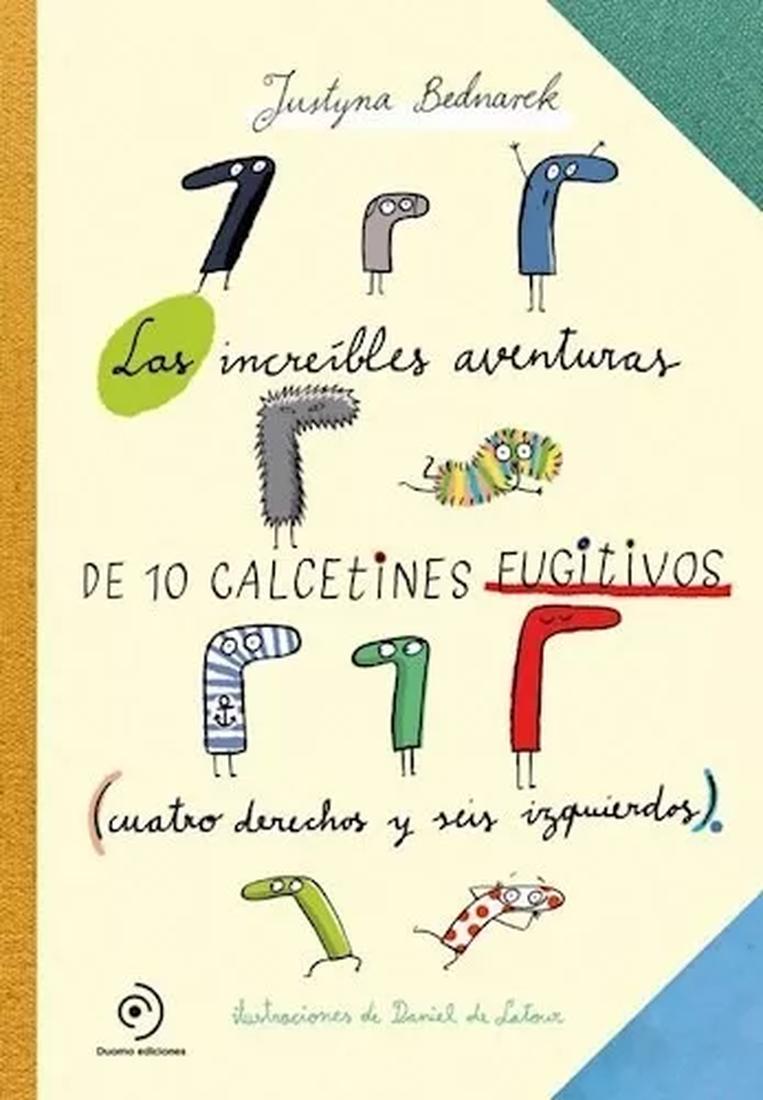 Justyna Bednarek
Las increíbles aventuras
DE 10 CALCETINES FUGITIVOS
(cuatro derechos y seis izquierdos).
ilustraciones de Daniel de Latour
Duomo ediciones